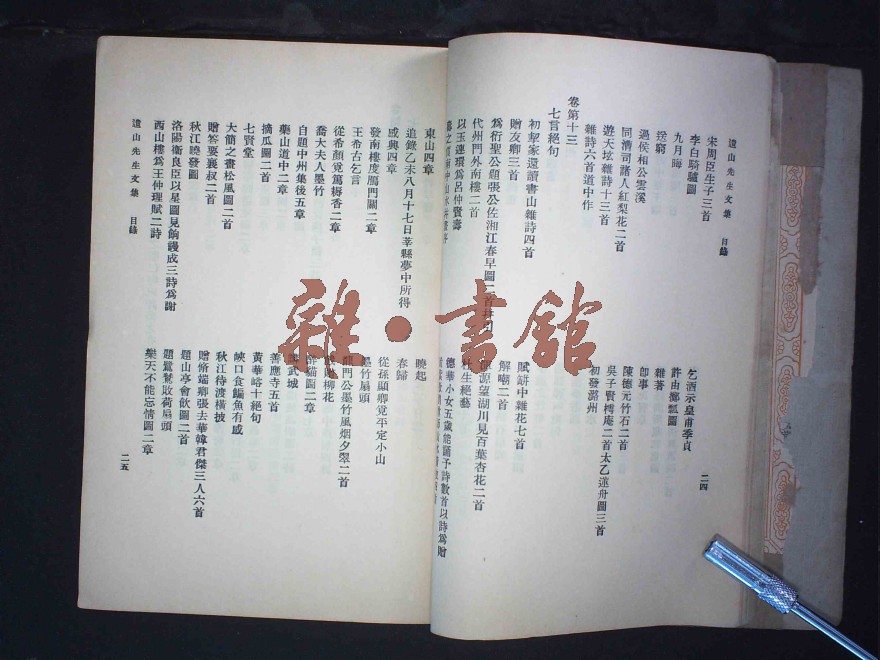 遺山先生文集　目錄
二四
宋周臣生子三首
李白騎驢圖
九月晦
送窮
過侯相公雲溪
同濟司諸人紅梨花二首
遊天壇雜詩十三首
雜詩六首道中作
乞酒示皇甫季貞
許由擲瓢圖
雜著
即事
陳德元竹石二首
吳子賢樗庵二首太乙蓮舟圖三首
初發潞州
卷第十三
七言絕句
初挈家還讀書山雜詩四首
贈友卿三首
為衍聖公題張公佐湘江春早圖二首
代州門外南樓二首
以玉連環為呂仲賢壽
賦缾中雜花七首
解嘲二首
源望湖川見百葉杏花二首
杜生絕藝
德華小女五歲能誦予詩數首以詩為贈
東山四章
追錄乙未八月十七日莘縣夢中所得
感興四章
發南樓度鴈門關二章
王希古乞言
從希顏覓篤耨香二章
喬大夫人墨竹
自題中州集後五章
藥山道中二章
摘瓜圖二首
七賢堂
大簡之畫松風圖二首
贈答要襄叔二首
秋江曉發圖
洛陽衞良臣以星圖見餉謾成三詩為謝
西山樓為王仲理賦二詩
曉起
春歸
從孫顯卿覓平定小山
墨竹扇頭
龍門公墨竹風烟夕翠二首
柳花
醉貓圖二章
武城
善應寺五首
黃華峪十絕句
峽口食鯿魚有感
秋江待渡橫披
贈脩端卿張去華韓君傑三人六首
題山亭會飲圖二首
題鷺鷥敗荷扇頭
樂天不能忘情圖二章
遺山先生文集　目錄
二五
雜·書館